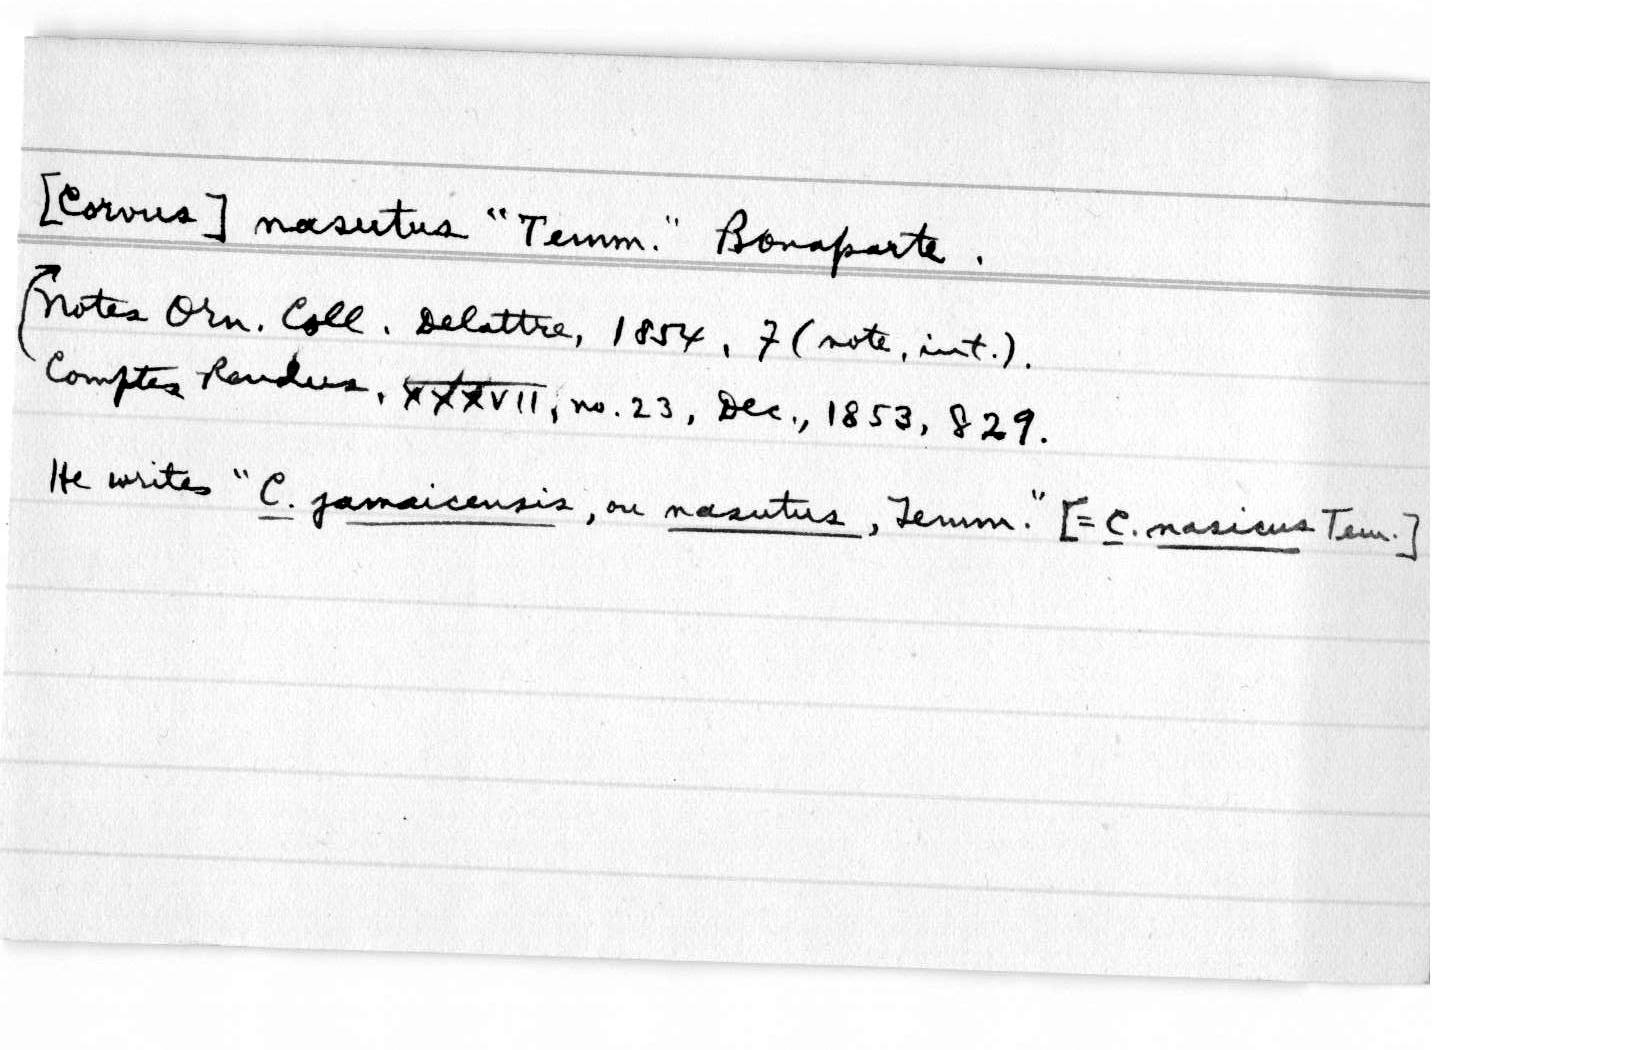 [Corvus] nasutus "Temm." Bonaparte.
Notes Orn. Coll. Delattre, 1854, 7 (note, int.).
Comptes Rendus, XXXVII, no. 23, Dec., 1853, 829.
He writes "C. jamaicensis, ou nasutus, Temm." [= C. nasicus Tem.]